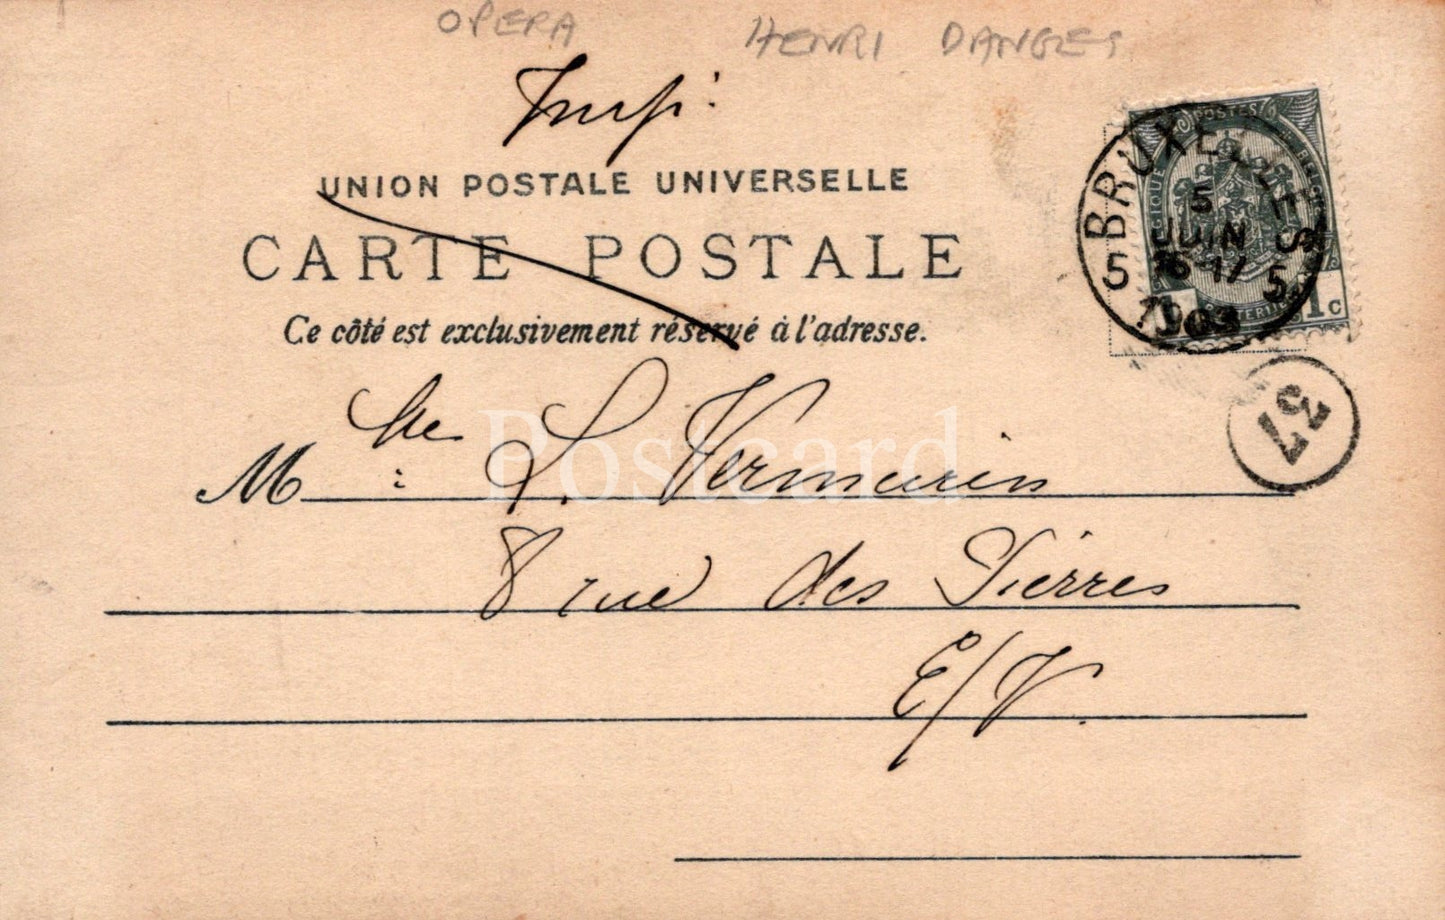 OPERA HENRI DANGES
UNION POSTALE UNIVERSELLE
CARTE POSTALE
Ce côté est exclusivement réservé à l'adresse.
BRUXELLES
5
JUIN
16-17
1903
5 5
POSTES
1 C
37
M lle L. Vermarin
8 rue des Pierres
E/V.
Postcard